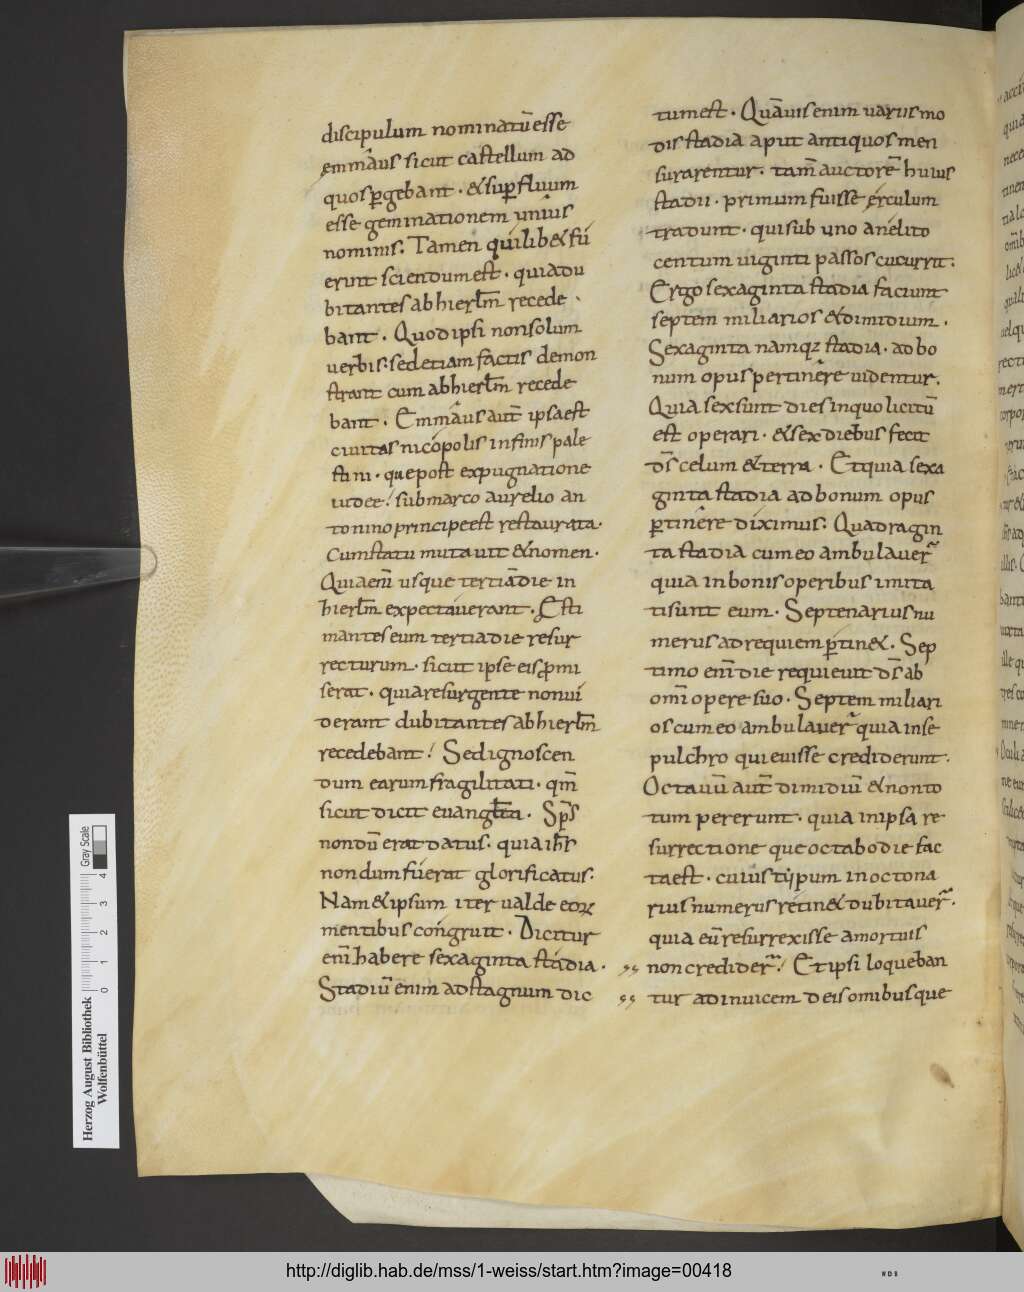 discipulum nominatū esse
emmaus sicut castellum ad
quos ꝑgebant · & suꝑfluum
esse geminationem unius
nominis. Tamen quilib& fu
erint sciendum est · quia du
bitantes ab hierłm recede
bant · Quod ipsi non solum
uerbis · sed etiam factis demon
strant cum ab hierłm recede
bant · Emmaus aut̄ ipsa est
ciuitas nicopolis in finis pale
stini · que post expugnatione
iudee ! sub marco aurelio an
tonino principe est restaurata ·
Cum statu mutauit & nomen ·
Quia enī usque tertiā die in
hierłm expectauerant · Esti
mantes eum tertia die resur
recturum · sicut ipse eis ꝓmi
serat · quia resurgente non ui
derant dubitantes ab hierłm
recedebant ! Sed ignoscen
dum earum fragilitati · qm̄
sicut dicit euangłta · Sp̄s
nondū erat datus · quia ih̄s
nondum fuerat glorificatus ·
Nam & ipsum iter ualde eoꝝ
mentibus congruit · Dicitur
enī habere sexaginta stadia ·
Stadiū enim ad stagnum dic
tum est · Quāuis enim uariis mo
dis stadia aput antiquos men
surarentur · tam̄ auctorē huius
stadii · primum fuisse erculum
tradunt · qui sub uno anelito
centum uiginti passos cucurrit ·
Ergo sexaginta stadia faciunt
septem miliarios & dimidium ·
Sexaginta namq; stadia · ad bo
num opus pertinere uidentur ·
Quia sex sunt dies in quo licitū
est operari · & sex diebus fecit
ds̄ celum & terra · Et quia sexa
ginta stadia ad bonum opus
ꝑtinere diximus · Quadragin
ta stadia cum eo ambulauer̄
quia in bonis operibus imita
ti sunt eum · Septenarius nu
merus ad requiem ꝑtin& · Sep
timo enī die requieuit ds̄ ab
omī opere suo · Septem miliari
os cum eo ambulauer̄ quia in se
pulchro quieuisse crediderunt ·
Octauū aut̄ dimidiū & non to
tum pererunt · quia in ipsa re
surrectione que octabo die fac
ta est · cuius typum in octona
rius numerus retin& dubitauer̄ ·
quia eū resurrexisse a mortuis
non credider̄ ! Et ipsi loqueban
tur ad inuicem de is omibus que
Herzog August Bibliothek
Wolfenbüttel
Gray Scale
0 1 2 3 4
http://diglib.hab.de/mss/1-weiss/start.htm?image=00418